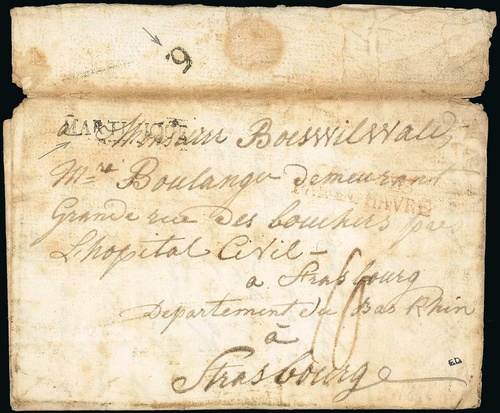 9
MARTINIQUE
a Monsieur Boeswilwald
Mre Boulanger demeurant
HAVRE
Grande rue des bouchers pres
L'hopital Civil -
a Strasbourg
Departement du Bas Rhin
à
Strasbourg
ED